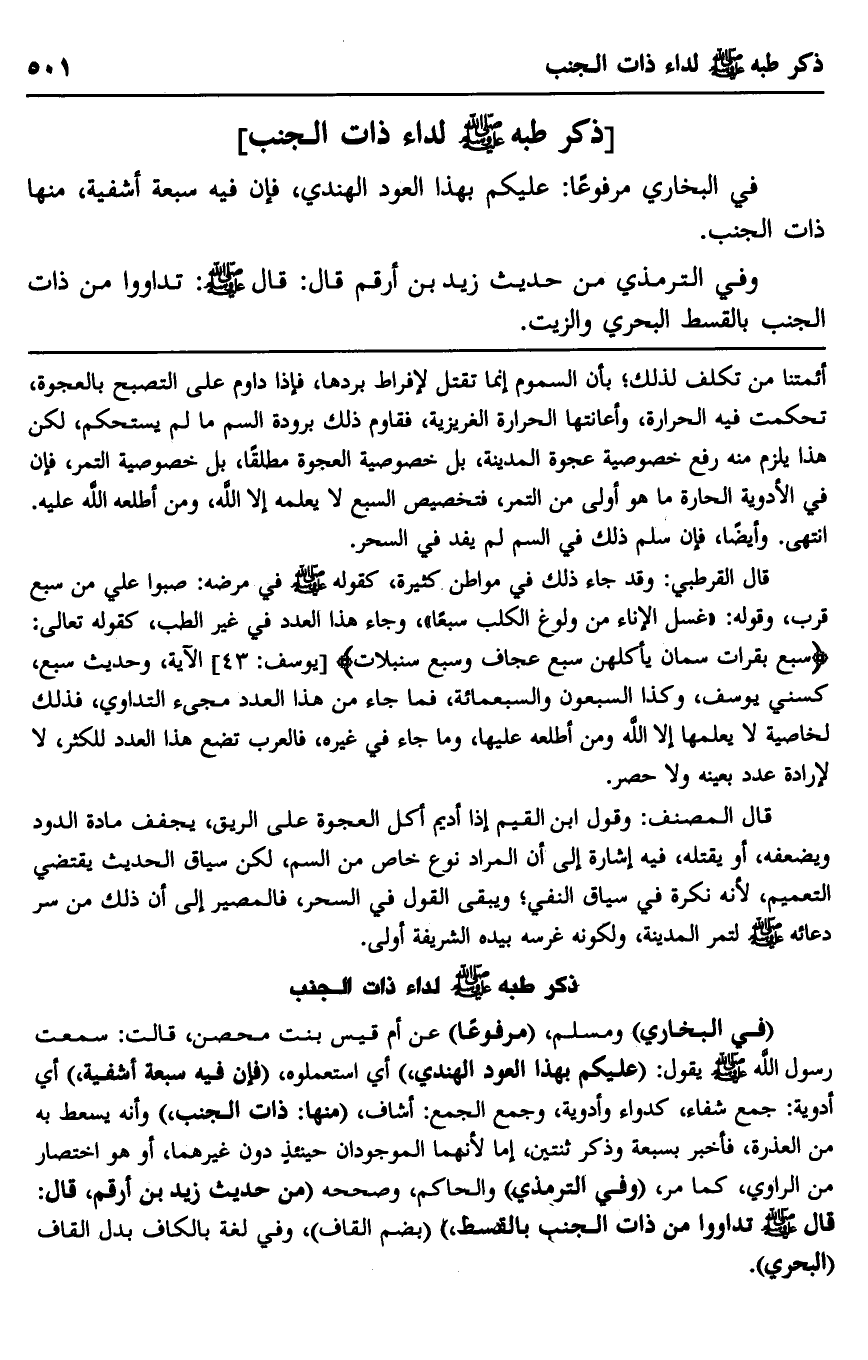 ذكر طبه ﷺ لداء ذات الـجنب ٥٠١
[ذكر طبه ﷺ لداء ذات الـجنب]
في البخاري مرفوعًا: عليكم بهذا العود الهندي، فإن فيه سبعة أشفية، منها
ذات الـجنب.
وفـي الـتـرمـذي مـن حـديـث زيـد بـن أرقـم قـال: قـال ﷺ: تـداووا مـن ذات
الـجنب بالقسط البحري والزيت.
أئمتنا من تكلف لذلك؛ بأن السموم إنما تقتل لإفراط بردها، فإذا داوم على التصبح بالعجوة،
تـحكمت فيه الـحرارة، وأعانتها الـحرارة الغريزية، فقاوم ذلك برودة السم ما لـم يستـحكم، لكن
هذا يلزم منه رفع خصوصية عجوة المدينة، بل خصوصية العجوة مطلقًا، بل خصوصية التمر، فإن
في الأدوية الحارة ما هو أولى من التمر، فتـخصيص السبع لا يعلمه إلا اللَّه، ومن أطلعه اللَّه عليه.
انتهى. وأيضًا، فإن سلم ذلك في السم لم يفد في السحر.
قال القرطبي: وقد جاء ذلك في مواطن كثيرة، كقوله ﷺ في مرضه: صبوا علي من سبع
قرب، وقوله: «غسل الإناء من ولوغ الكلب سبعًا»، وجاء هذا العدد في غير الطب، كقوله تعالى:
﴿سبع بقرات سمان يأكلهن سبع عجاف وسبع سنبلات﴾ [يوسف: ٤٣] الآية، وحديث سبع،
كسنـي يوسف، وكذا السبعون والسبعمائة، فـما جاء من هذا العدد مـجيء التداوي، فذلك
لـخاصية لا يعلـمها إلا اللَّه ومن أطلعه عليها، وما جاء في غيره، فالعرب تضع هذا العدد للكثر، لا
لإرادة عدد بعينه ولا حصر.
قال الـمصنف: وقول ابن القيم إذا أديم أكل العجوة علـى الريق، يـجفف مادة الدود
ويضعفه، أو يقتله، فيه إشارة إلى أن الـمراد نوع خاص من السم، لكن سياق الـحديث يقتضي
التعميم، لأنه نكرة في سياق النفي؛ ويبقى القول في السحر، فالـمصير إلى أن ذلك من سر
دعائه ﷺ لتمر المدينة، ولكونه غرسه بيده الشريفة أولى.
ذكر طبه ﷺ لداء ذات الـجنب
(فـي الـبـخاري) ومسلـم، (مـرفـوعًا) عن أم قـيس بـنت مـحصن، قـالـت: سـمعـت
رسول اللَّه ﷺ يقول: (عليكم بهذا العود الهندي،) أي استعملوه، (فإن فيه سبعة أشفية،) أي
أدوية: جمع شفاء، كدواء وأدوية، وجمع الـجمع: أشاف، (منها: ذات الـجنب،) وأنه يسعط به
من العذرة، فأخبر بسبعة وذكر ثنتين، إما لأنهما الـموجودان حينئذٍ دون غيرهما، أو هو اختصار
من الراوي، كـما مر، (وفـي الترمذي) والـحاكم، وصححه (من حديث زيد بن أرقم، قال:
قال ﷺ تداووا من ذات الـجنب بالقسط،) (بضم القاف)، وفي لغة بالكاف بدل القاف
(البحري).